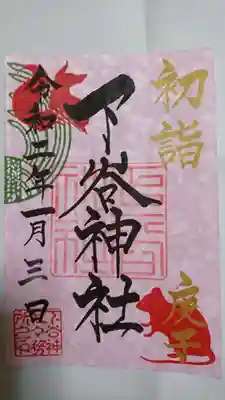 初詣
庚子
下谷神社
令和二年一月三日